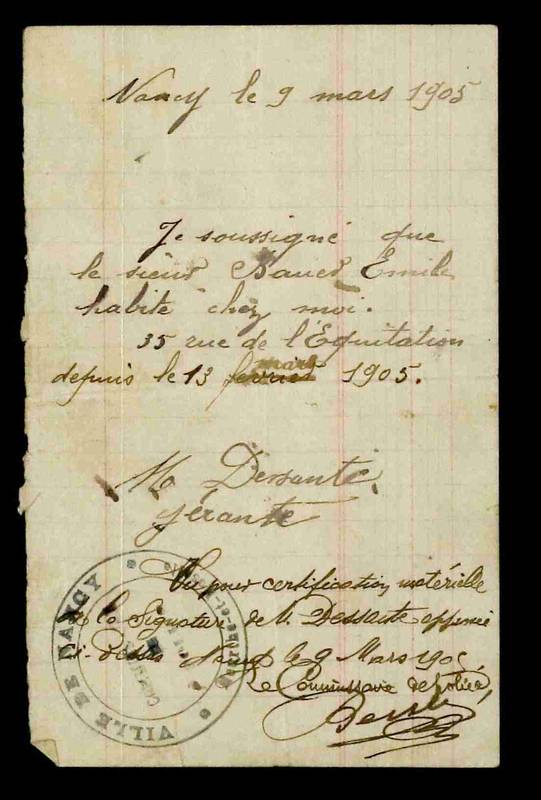 Nancy le 9 mars 1905
Je soussigné que
le sieur Bauer Émile
habite chez moi.
35 rue de l'Equitation
depuis le 13 fevrier mars 1905.
M Dessante
gérante
Vu pour certification matérielle
de la Signature de M. Dessante apposée
ci-Dessus Nancy le 9 Mars 1905
Le Commissaire de Police,
VILLE DE NANCY
Meurthe-et-Moselle